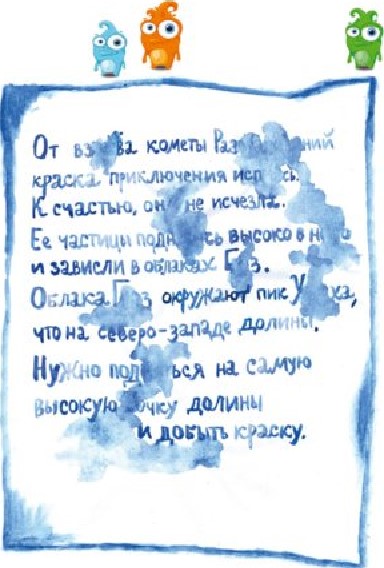 От взрыва кометы
краска приключения
К счастью, она не исчезла.
Ее частицы поднялись высоко в небо
и зависли в облаках
Облака окружают пик
что на северо-западе долины.
Нужно подняться на самую
высокую точку долины
и добыть краску.